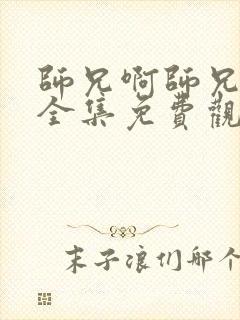 師兄啊師兄
全集免費觀
末子浪们那个